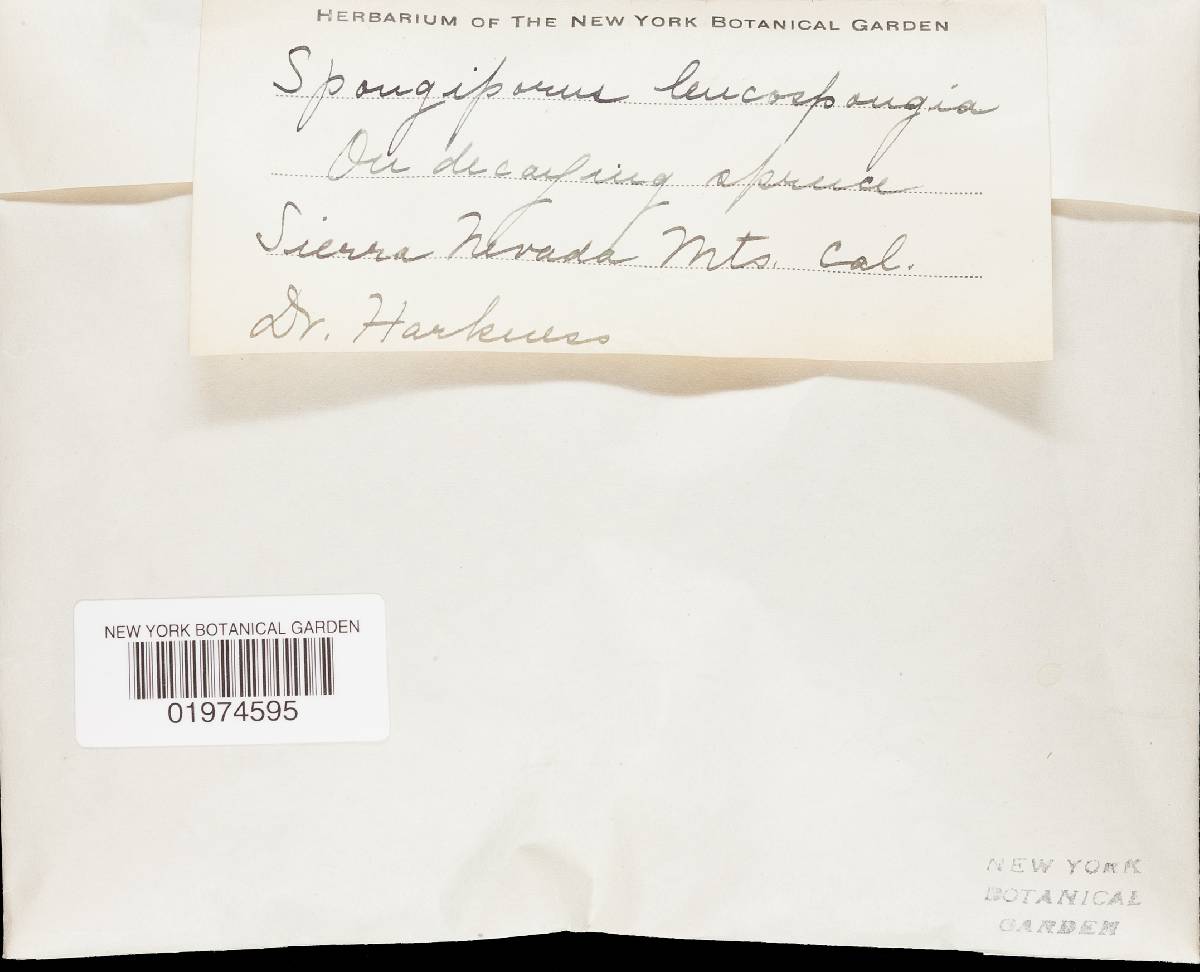 HERBARIUM OF THE NEW YORK BOTANICAL GARDEN
Spongiporus leucospongia
On decaying spruce
Sierra Nevada Mts. Cal.
Dr. Harkness
NEW YORK BOTANICAL GARDEN
01974595
NEW YORK
BOTANICAL
GARDEN